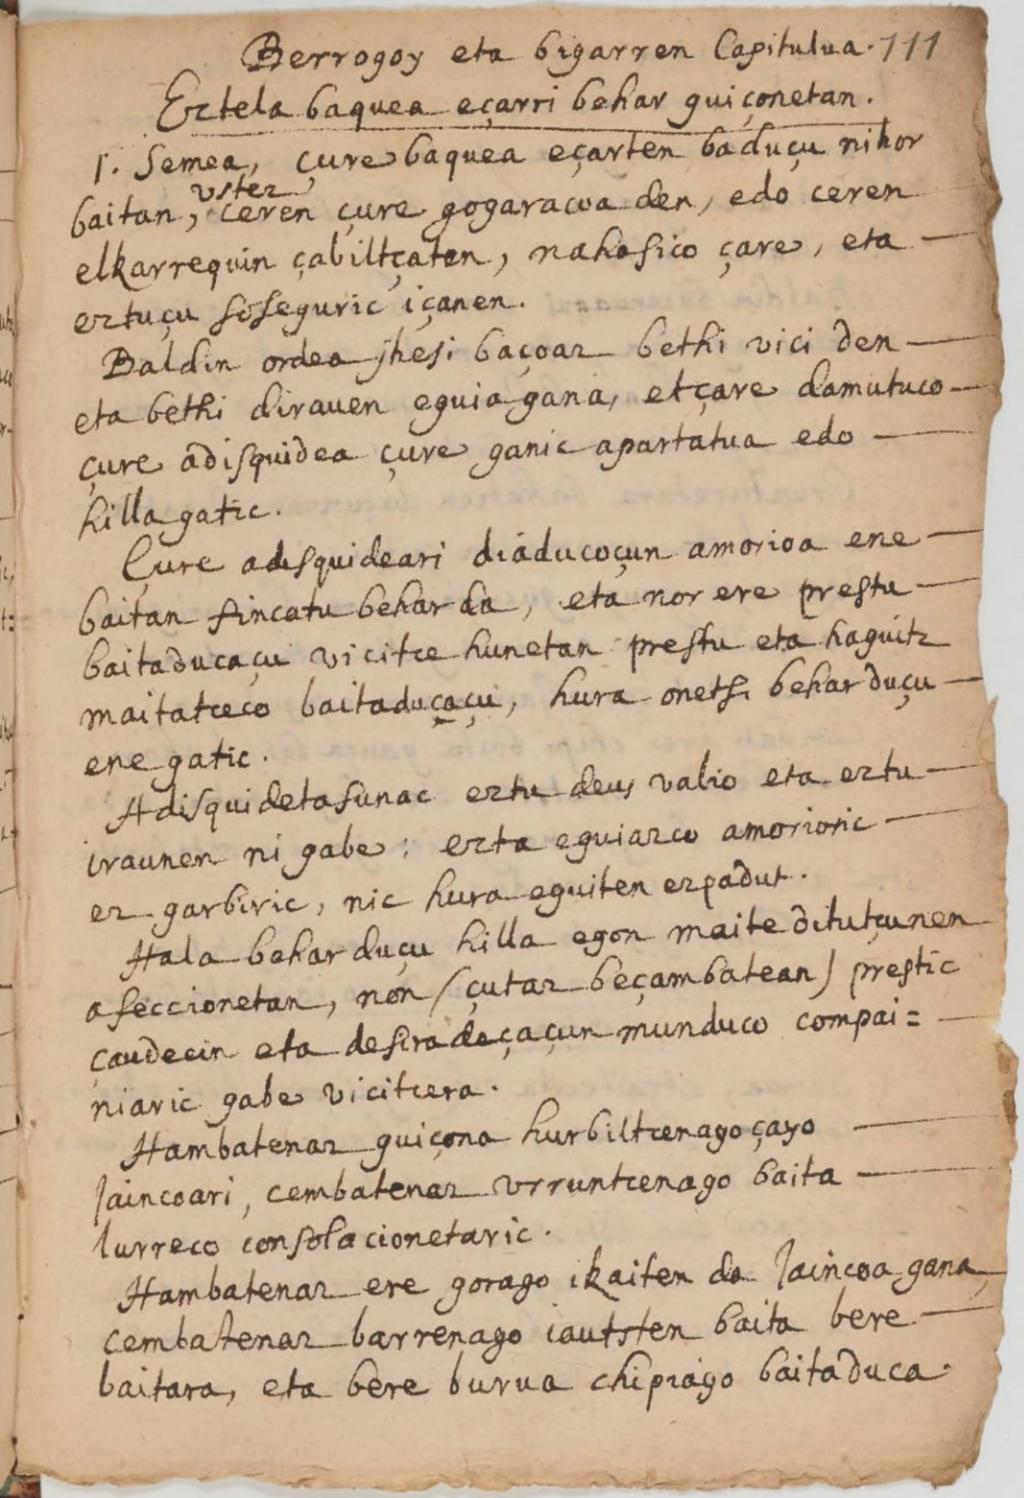 Berrogoy eta bigarren Capitulua. 111
Eztela baquea eçarri behar guiçonetan.
1. Semea, çure baquea eçarten baduçu nihor
vstez
baitan, ceren çure gogaracoa den, edo ceren
elkarrequin çabiltçaten, nahasico çare, eta
eztuçu soseguric içanen.
Baldin ordea jhesi baçoaz bethi vici den
eta bethi dirauen eguia gana, etçare damutuco
çure adisquidea çure ganic apartatua edo
hilla gatic.
Çure adisquideari diaducoçun amorioa ene
baitan fincatu behar da, eta nor ere prestu
baitaducaçu vicitce hunetan prestu eta haguitz
maitatceco baitaducaçu, hura onetsi behar duçu
ene gatic.
Adisquidetasunac eztu deus valio eta eztu
iraunen ni gabe: ezta eguiazco amorioric
ez garbiric, nic hura eguiten ezpadut.
Hala behar duçu hilla egon maite ditutçunen
afeccionetan, non (çutaz beçambatean) prestic
çaudecin eta desira deçaçun munduco compai=
niaric gabe vicitcera.
Hambatenaz guiçona hurbiltcenago çayo
Jaincoari, cembatenaz vrruntcenago baita
lurreco consolacionetaric.
Hambatenaz ere gorago ikaiten da Jaincoa gana,
cembatenaz barrenago iautsten baita bere
baitara, eta bere burua chipiago baitaduca.